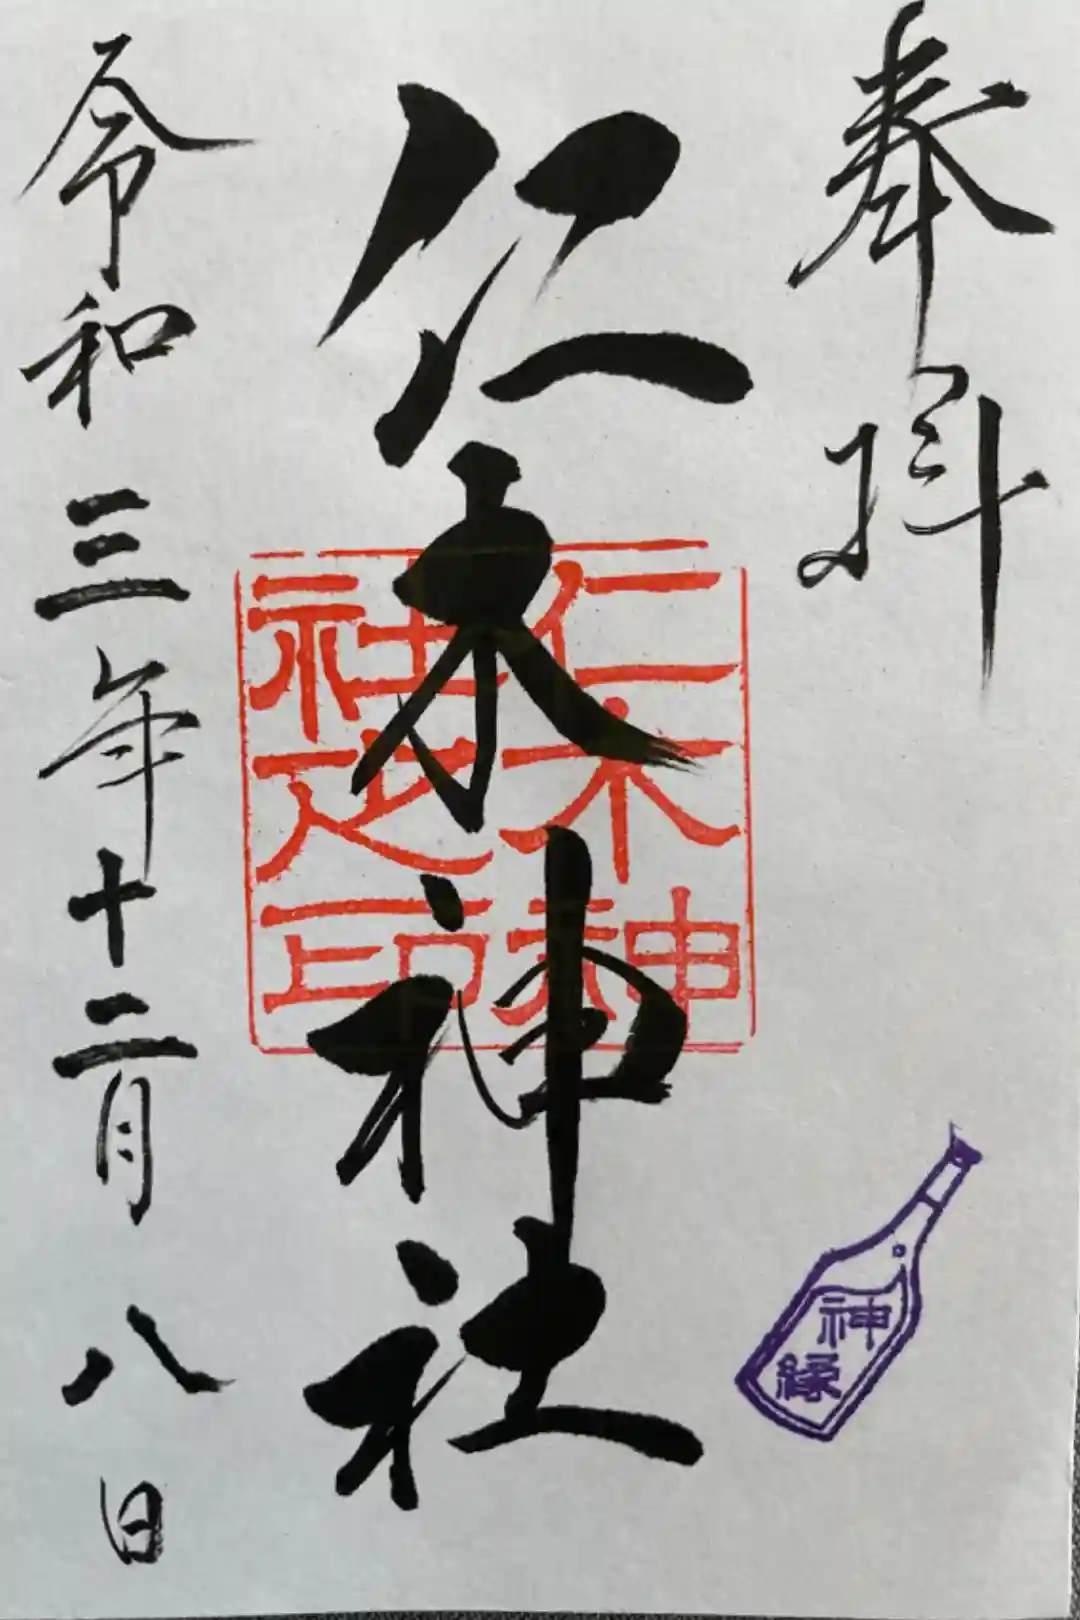 奉拝
神縁
仁木神社
仁木神
社之印
令和三年十二月八日